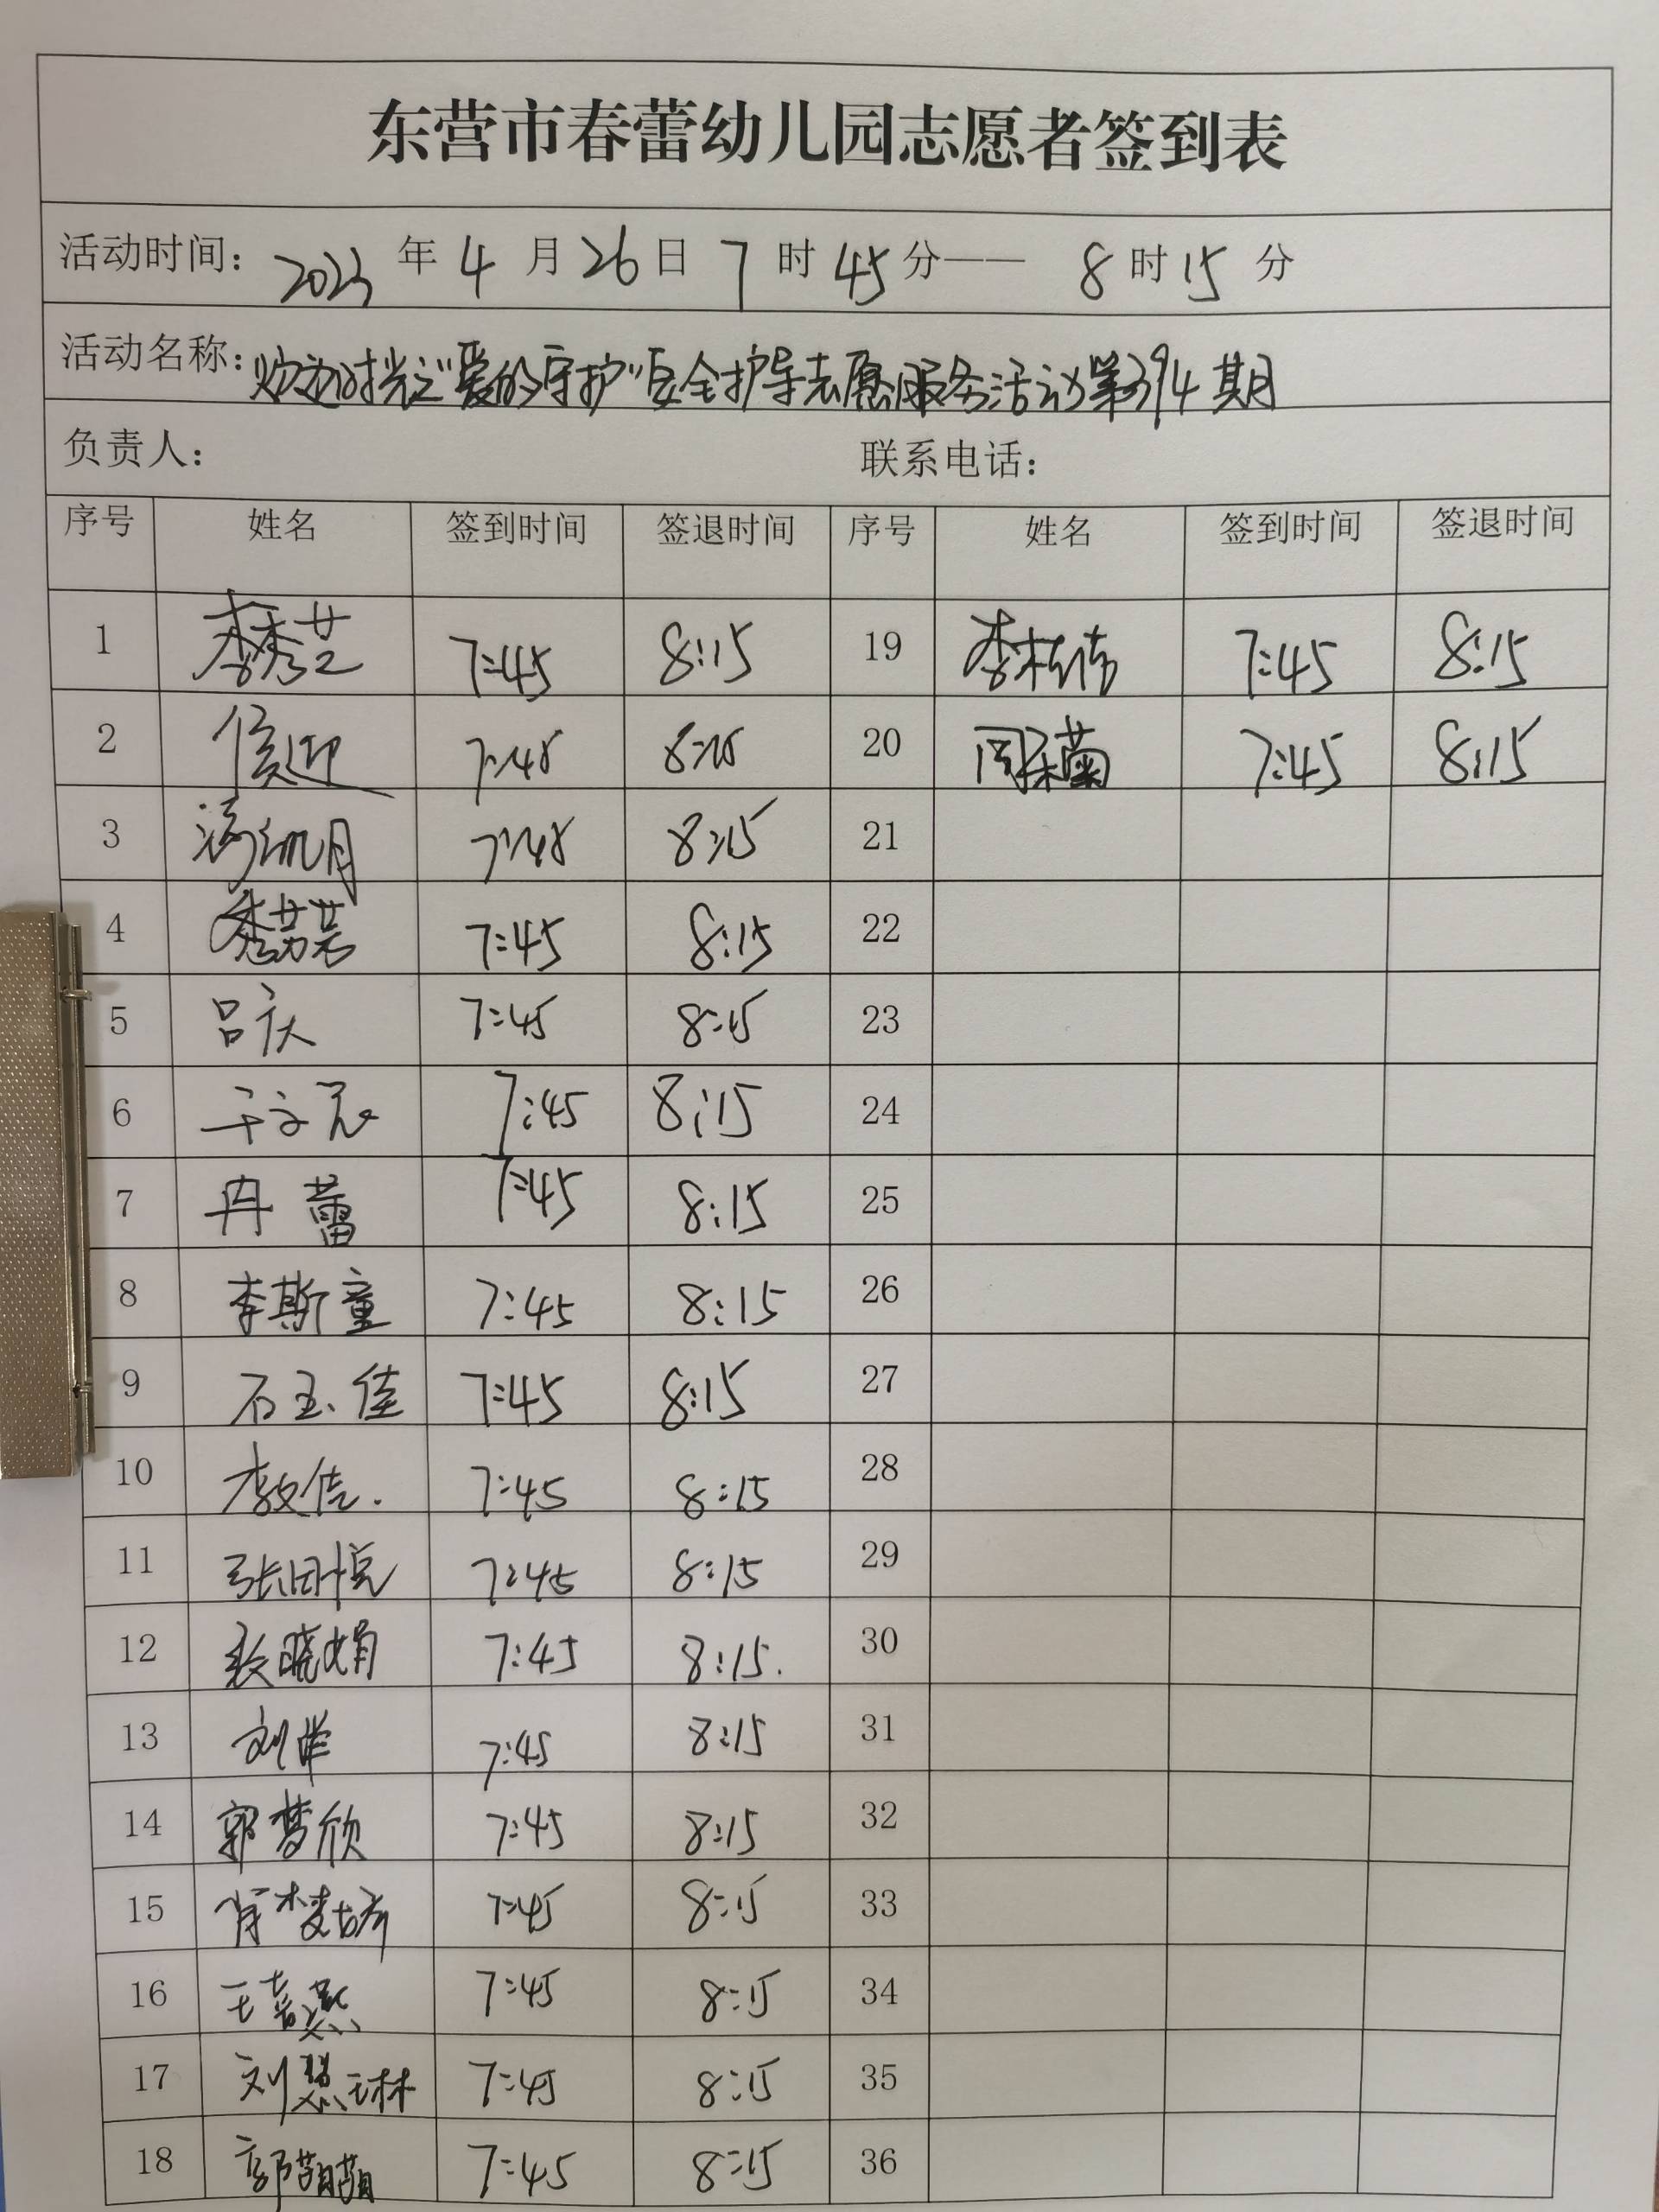 东营市春蕾幼儿园志愿者签到表
活动时间: 2023 年 4 月 26 日 7 时 45 分—— 8 时 15 分
活动名称: 时光之“爱的守护”安全护导志愿服务活动第394期
负责人: 联系电话:
序号 姓名 签到时间 签退时间 序号 姓名 签到时间 签退时间
1 李秀芝 7:45 8:15 19 李桂伟 7:45 8:15
2 侯迎 7:45 8:15 20 周采菊 7:45 8:15
3 7:45 8:15 21
4 7:45 8:15 22
5 吕庆 7:45 8:15 23
6 7:45 8:15 24
7 冉蕾 7:45 8:15 25
8 李斯童 7:45 8:15 26
9 石玉佳 7:45 8:15 27
10 李文佳. 7:45 8:15 28
11 张田悦 7:45 8:15 29
12 晓娟 7:45 8:15. 30
13 刘洋 7:45 8:15 31
14 郭梦欣 7:45 8:15 32
15 肖梦婷 7:45 8:15 33
16 王喜燕 7:45 8:15 34
17 刘慧琳 7:45 8:15 35
18 郭萌萌 7:45 8:15 36